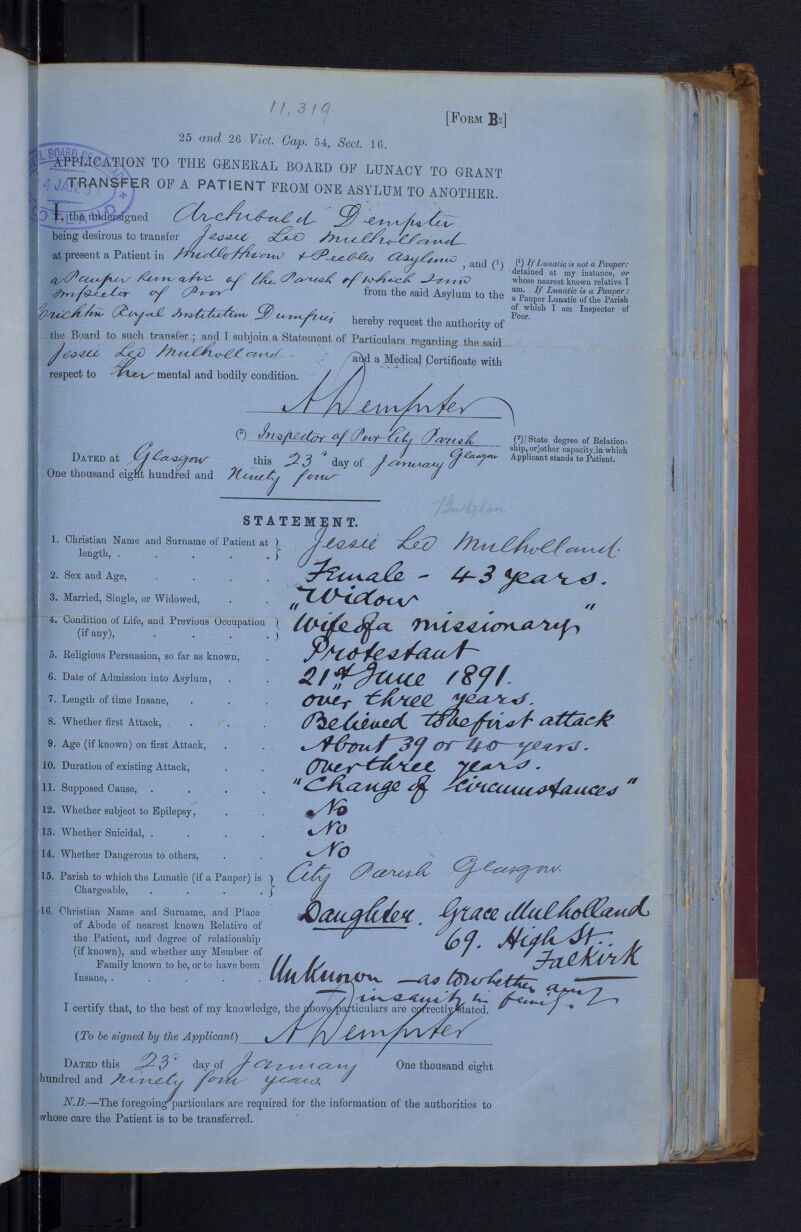 11,319
[FORM B2]
25 and 26 Vict. Cap. 54, Sect. 16.
APPLICATION TO THE GENERAL BOARD OF LUNACY TO GRANT
TRANSFER OF A PATIENT FROM ONE ASYLUM TO ANOTHER.
I, the undersigned Archibald Dempster
being desirous to transfer Jessie Leo Mulholland
at present a Patient in Midlothian & Peebles Asylum, and (¹)
a Pauper Lunatic of the Parish of which I am
Inspector of Poor from the said Asylum to the
Crichton Royal Institution Dumfries hereby request the authority of
the Board to such transfer; and I subjoin a Statement of Particulars regarding the said
Jessie Leo Mulholland and a Medical Certificate with
respect to her mental and bodily condition.
(¹) If Lunatic is not a Pauper:
detained at my instance, or
whose nearest known relative I
am. If Lunatic is a Pauper:
a Pauper Lunatic of the Parish
of which I am Inspector of
Poor.
A Dempster
(²) Inspector of Poor City Parish
Glasgow
(²) State degree of Relation-
ship, or other capacity in which
Applicant stands to Patient.
DATED at Glasgow this 23d day of January
One thousand eight hundred and Ninety four
STATEMENT.
1. Christian Name and Surname of Patient at
length, . Jessie Leo Mulholland.
2. Sex and Age, Female - 43 years.
3. Married, Single, or Widowed, Widow
4. Condition of Life, and Previous Occupation
(if any), "Wife of a missionary"
5. Religious Persuasion, so far as known, Protestant
6. Date of Admission into Asylum, 21st June 1891.
7. Length of time Insane, over three years.
8. Whether first Attack, Believed to be first attack
9. Age (if known) on first Attack, About 39 or 40 years.
10. Duration of existing Attack, Over three years.
11. Supposed Cause, "Change of circumstances"
12. Whether subject to Epilepsy, No
13. Whether Suicidal, No
14. Whether Dangerous to others, No
15. Parish to which the Lunatic (if a Pauper) is
Chargeable, City Parish Glasgow.
16. Christian Name and Surname, and Place
of Abode of nearest known Relative of
the Patient, and degree of relationship
(if known), and whether any Member of
Family known to be, or to have been
Insane,
Daughter. Grace Mulholland
69. High St.
Falkirk
Unknown — as to whether any
insanity in family.
I certify that, to the best of my knowledge, the above particulars are correctly stated.
(To be signed by the Applicant) A Dempster
DATED this 23d day of January One thousand eight
hundred and ninety four years.
N.B.—The foregoing particulars are required for the information of the authorities to
whose care the Patient is to be transferred.